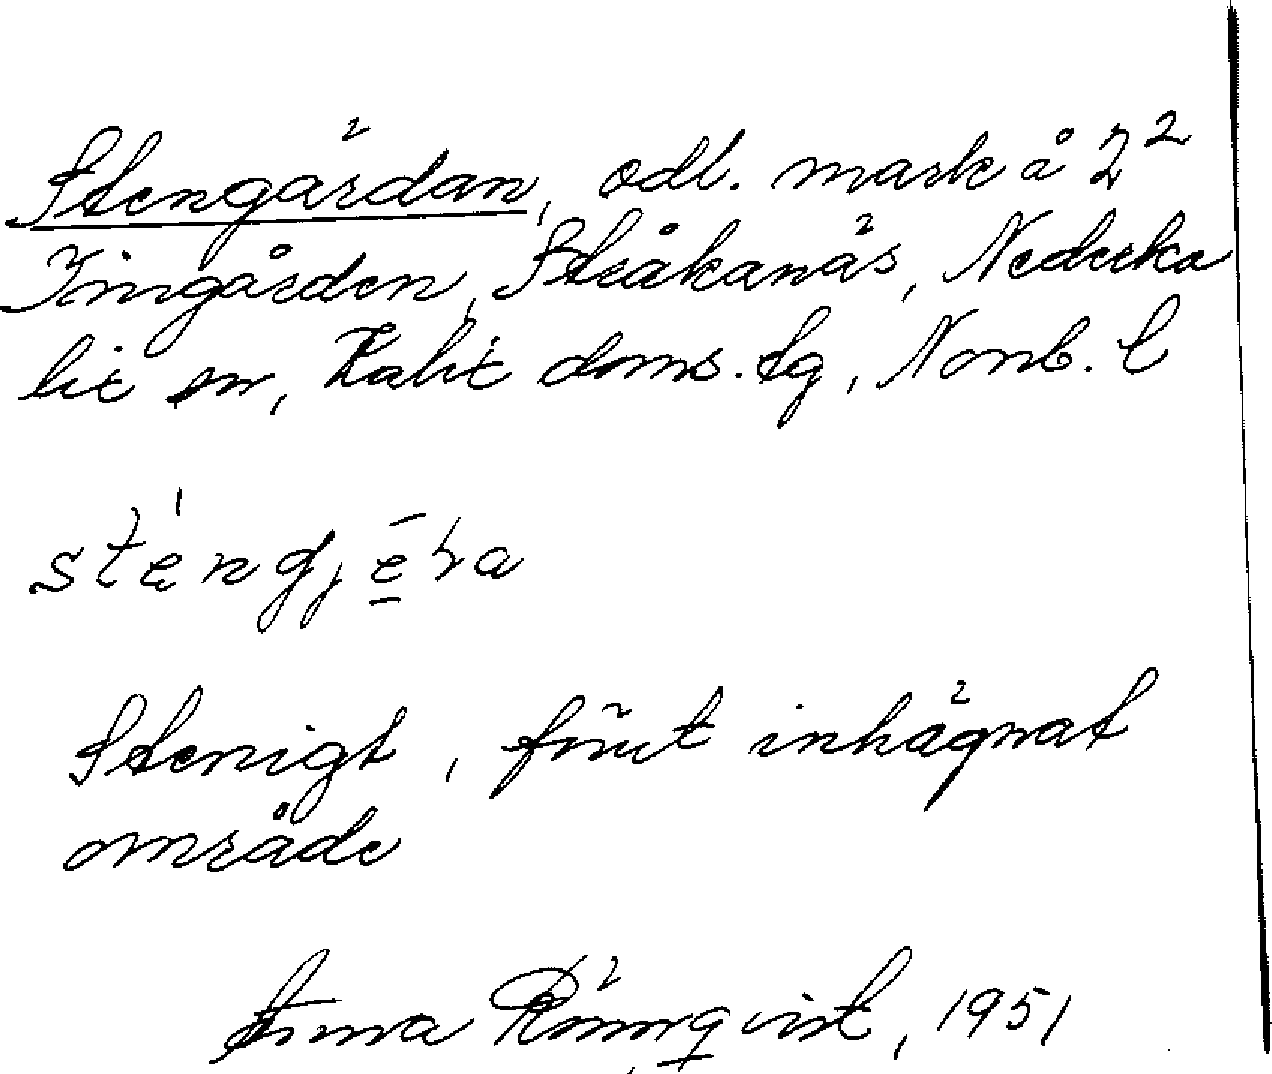 Stengärdan, odl. mark å 2²
Jimgården, Stråkanäs, Nederka
lix sn, Kalix doms. sg, Norrb. l
sténgjēra
Stenigt, förut inhägnat
område
Anna Rönnqvist, 1951